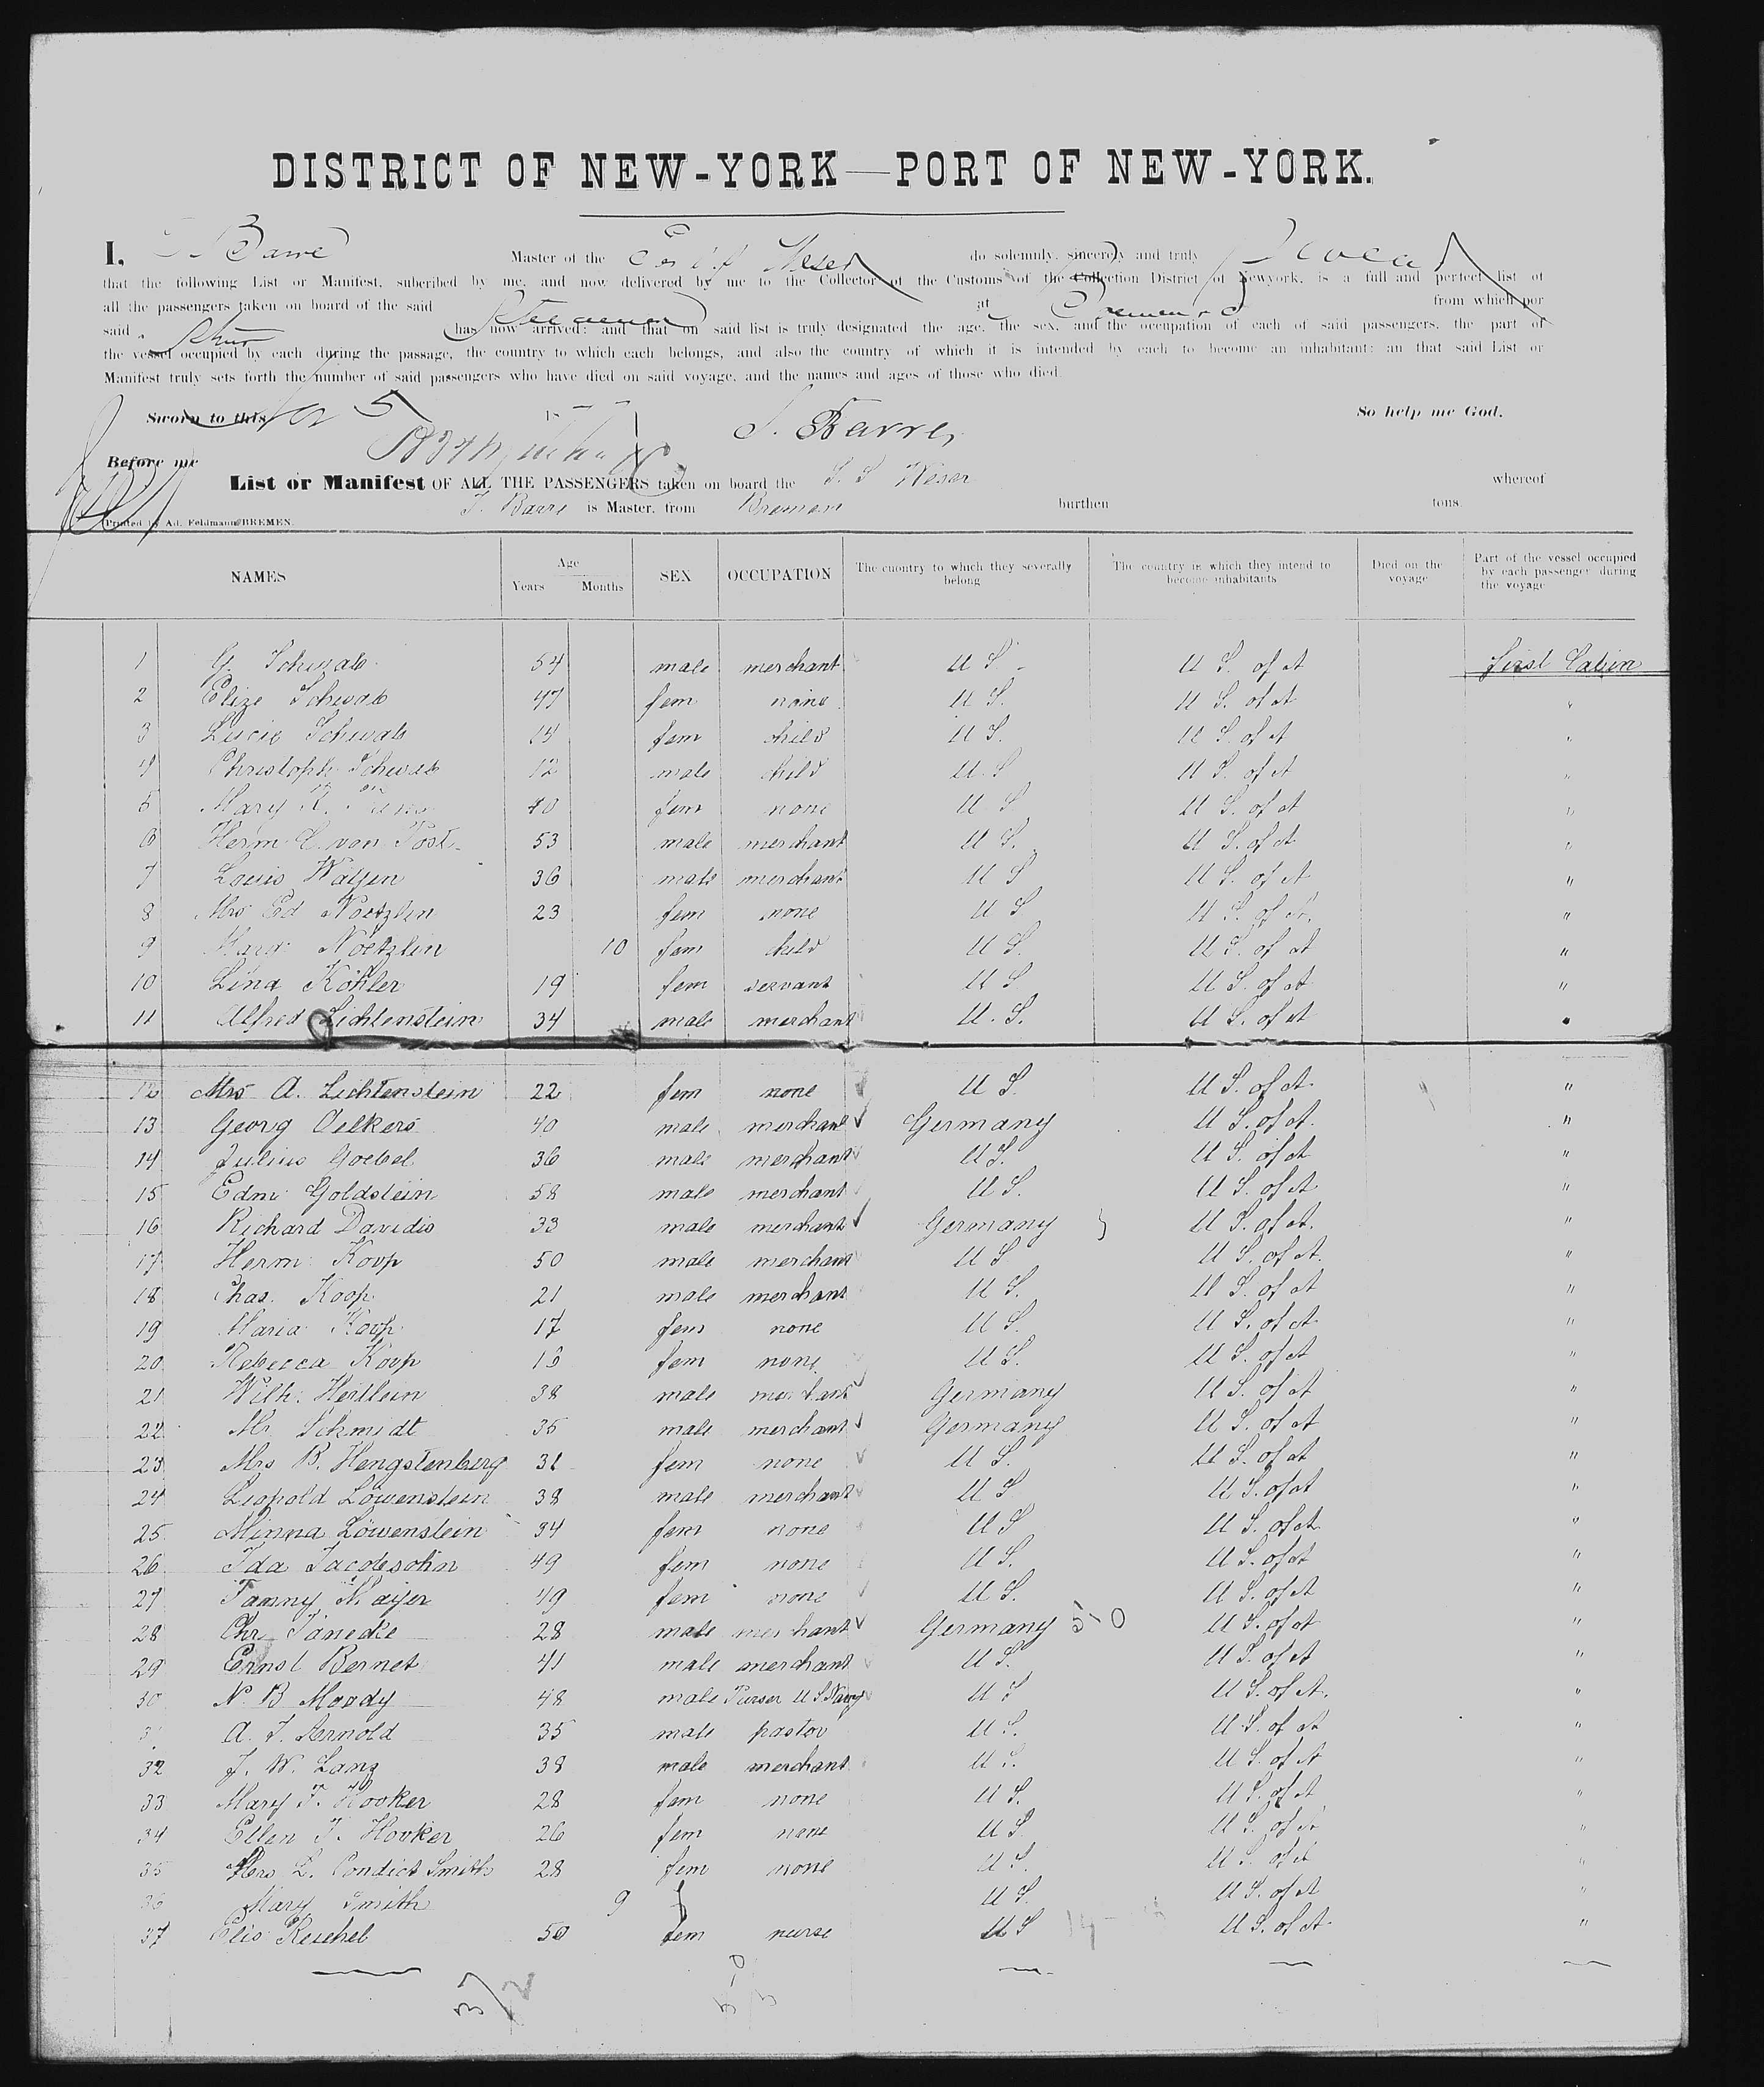 DISTRICT OF NEW-YORK—PORT OF NEW-YORK.
I, Barre Master of the Weser do solemnly, sincerely and truly
that the following List or Manifest, suberibed by me, and now delivered by me to the Collector of the Customs of the Collection District of Newyork, is a full and perfect list of
all the passengers taken on board of the said at from which por
said has now arrived: and that on said list is truly designated the age, the sex, and the occupation of each of said passengers, the part of
the vessel occupied by each during the passage, the country to which each belongs, and also the country of which it is intended by each to become an inhabitant: an that said List or
Manifest truly sets forth the number of said passengers who have died on said voyage, and the names and ages of those who died.
Sworn to this 5 So help me God.
Barre
Before me
List or Manifest OF ALL THE PASSENGERS taken on board the S. S Weser whereof
Barre is Master, from Bremen burthen tons
Printed by Ad. Feldmann BREMEN.
NAMES Age Years Months SEX OCCUPATION The cuontry to which they severally belong The country in which they intend to become inhabitants Died on the voyage Part of the vessel occupied by each passenger during the voyage
1 G. Schwab 54 male merchant U S U S. of A first Cabin
2 Elize Schwab 47 fem none U S. U S. of A "
3 Lucie Schwab 14 fem child U S. U S. of A "
4 Christoph Schwab 12 male child U. S U S. of A "
5 Mary R. 40 fem none U S U S. of A "
6 Herm C. von Post 53 male merchant U S. U S. of A "
7 Louis Watjen 36 male merchant U S U S. of A "
8 Mrs Ed Noetzlin 23 fem none U S U S. of A. "
9 Noetzlin 10 fem child U S. U S. of A "
10 Lina Köhler 19 fem servant U S U S. of A "
11 Alfred Lichtenstein 34 male merchant U. S. U S. of A "
12 Mrs A. Lichtenstein 22 fem none U S. U S. of A. "
13 Georg Oelkers 40 male merchant Germany U S. of A. "
14 Julius Goebel 36 male merchant U S. U S. of A "
15 Edm. Goldstein 58 male merchant U S. U S. of A "
16 Richard Davidis 33 male merchant Germany U S. of A. "
17 Herm. Koop 50 male merchant U S U S. of A. "
18 Chas. Koop 21 male merchant U S. U S. of A "
19 Maria Koop 17 fem none U S. U S. of A. "
20 Rebecca Koop fem none U S. U S. of A "
21 Wilh. Hertlein 38 male merchant Germany U S. of A "
22 Mr Schmidt 35 male merchant Germany U S. of A "
23 Mrs B. Hengstenberg 31 fem none U S. U S. of A "
24 Leopold Löwenstein 38 male merchant U S U S. of A "
25 Minna Löwenstein 34 fem none U S U S. of A "
26 Ida Jacobsohn 49 fem none U S. U S. of A "
27 Fanny Mayer 49 fem none U S. U S. of A "
28 Chr. Janecke 28 male merchant Germany 5-0 U S. of A "
29 Ernst Bernet 41 male merchant U S. U S. of A "
30 N. B Moody 48 male Purser U S Navy U S U S. of A. "
A. F. Arnold 35 male pastor U S. U S. of A "
32 J. W. Lang 38 male merchant U S. U S. of A "
33 Mary T. Hooker 28 fem none U S. U S. of A "
34 Ellen T. Hooker 26 fem none U S. U S. of A "
35 Mrs L. Condict Smith 28 fem none U S. U S. of A "
36 Mary Smith 9 f U S. U S. of A "
37 Elis Reichel 50 fem nurse U S U S. of A. "